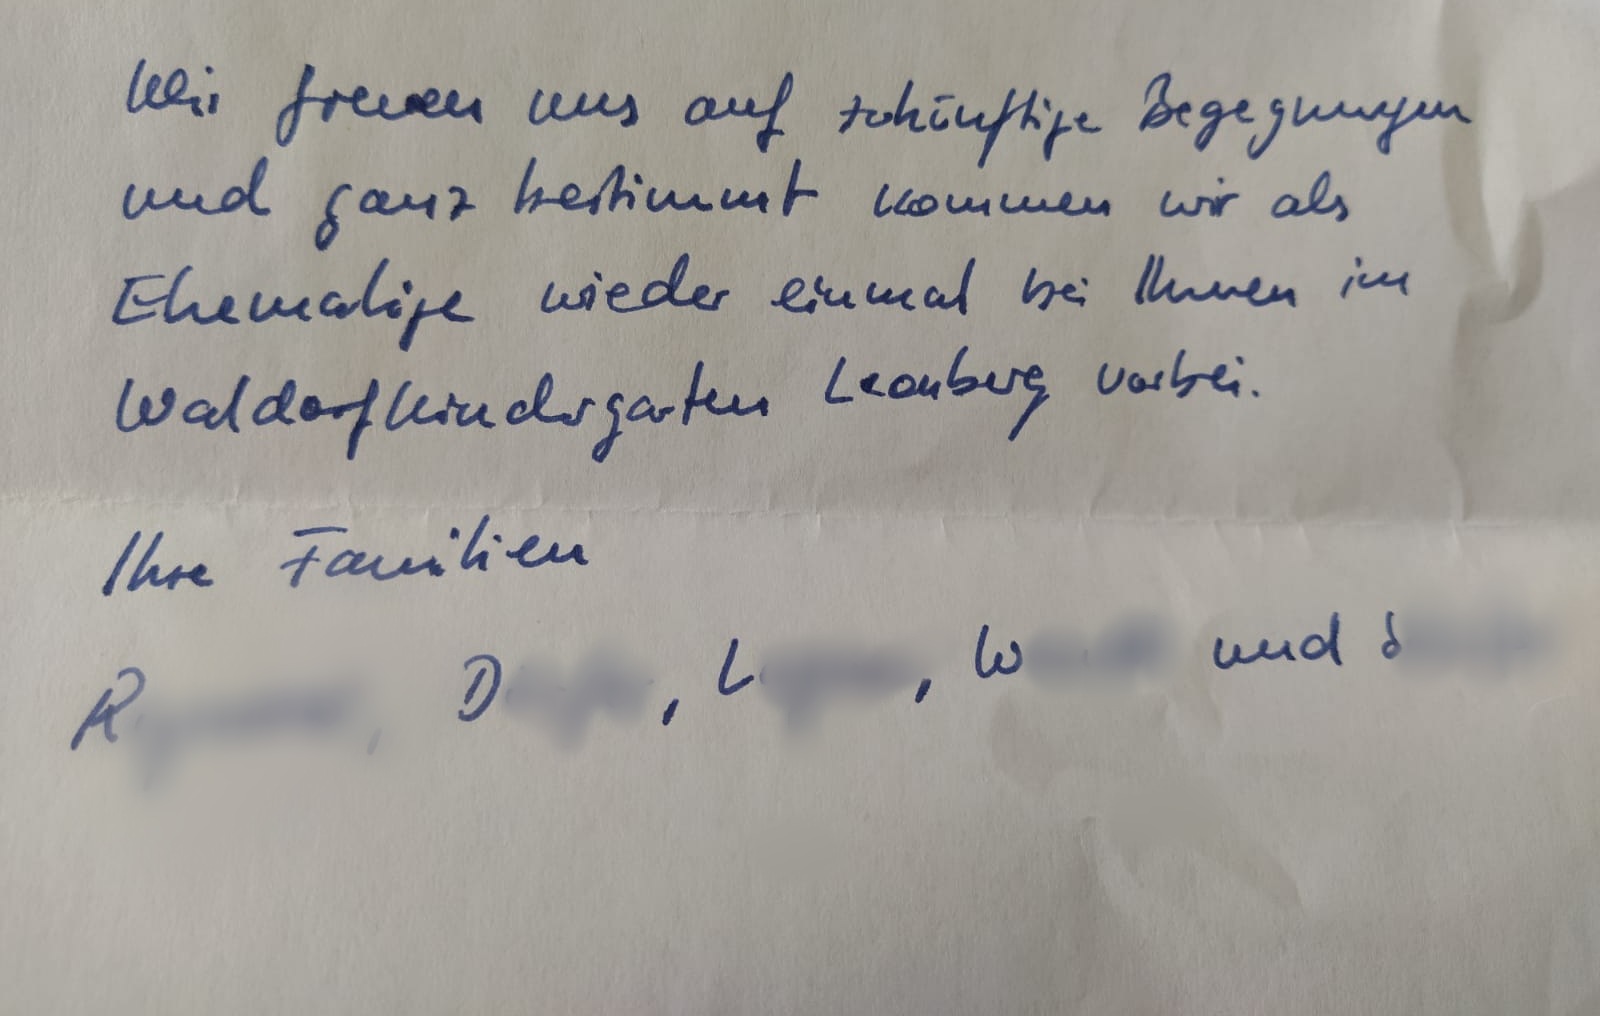 Wir freuen uns auf zukünftige Begegnungen
und ganz bestimmt kommen wir als
Ehemalige wieder einmal bei Ihnen im
Waldorfkindergarten Leonberg vorbei.
Ihre Familien
R , D , L , W und